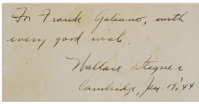 For Frank Galiano, with
every good wish.
Wallace Stegner
Cambridge, Jan 19, '44